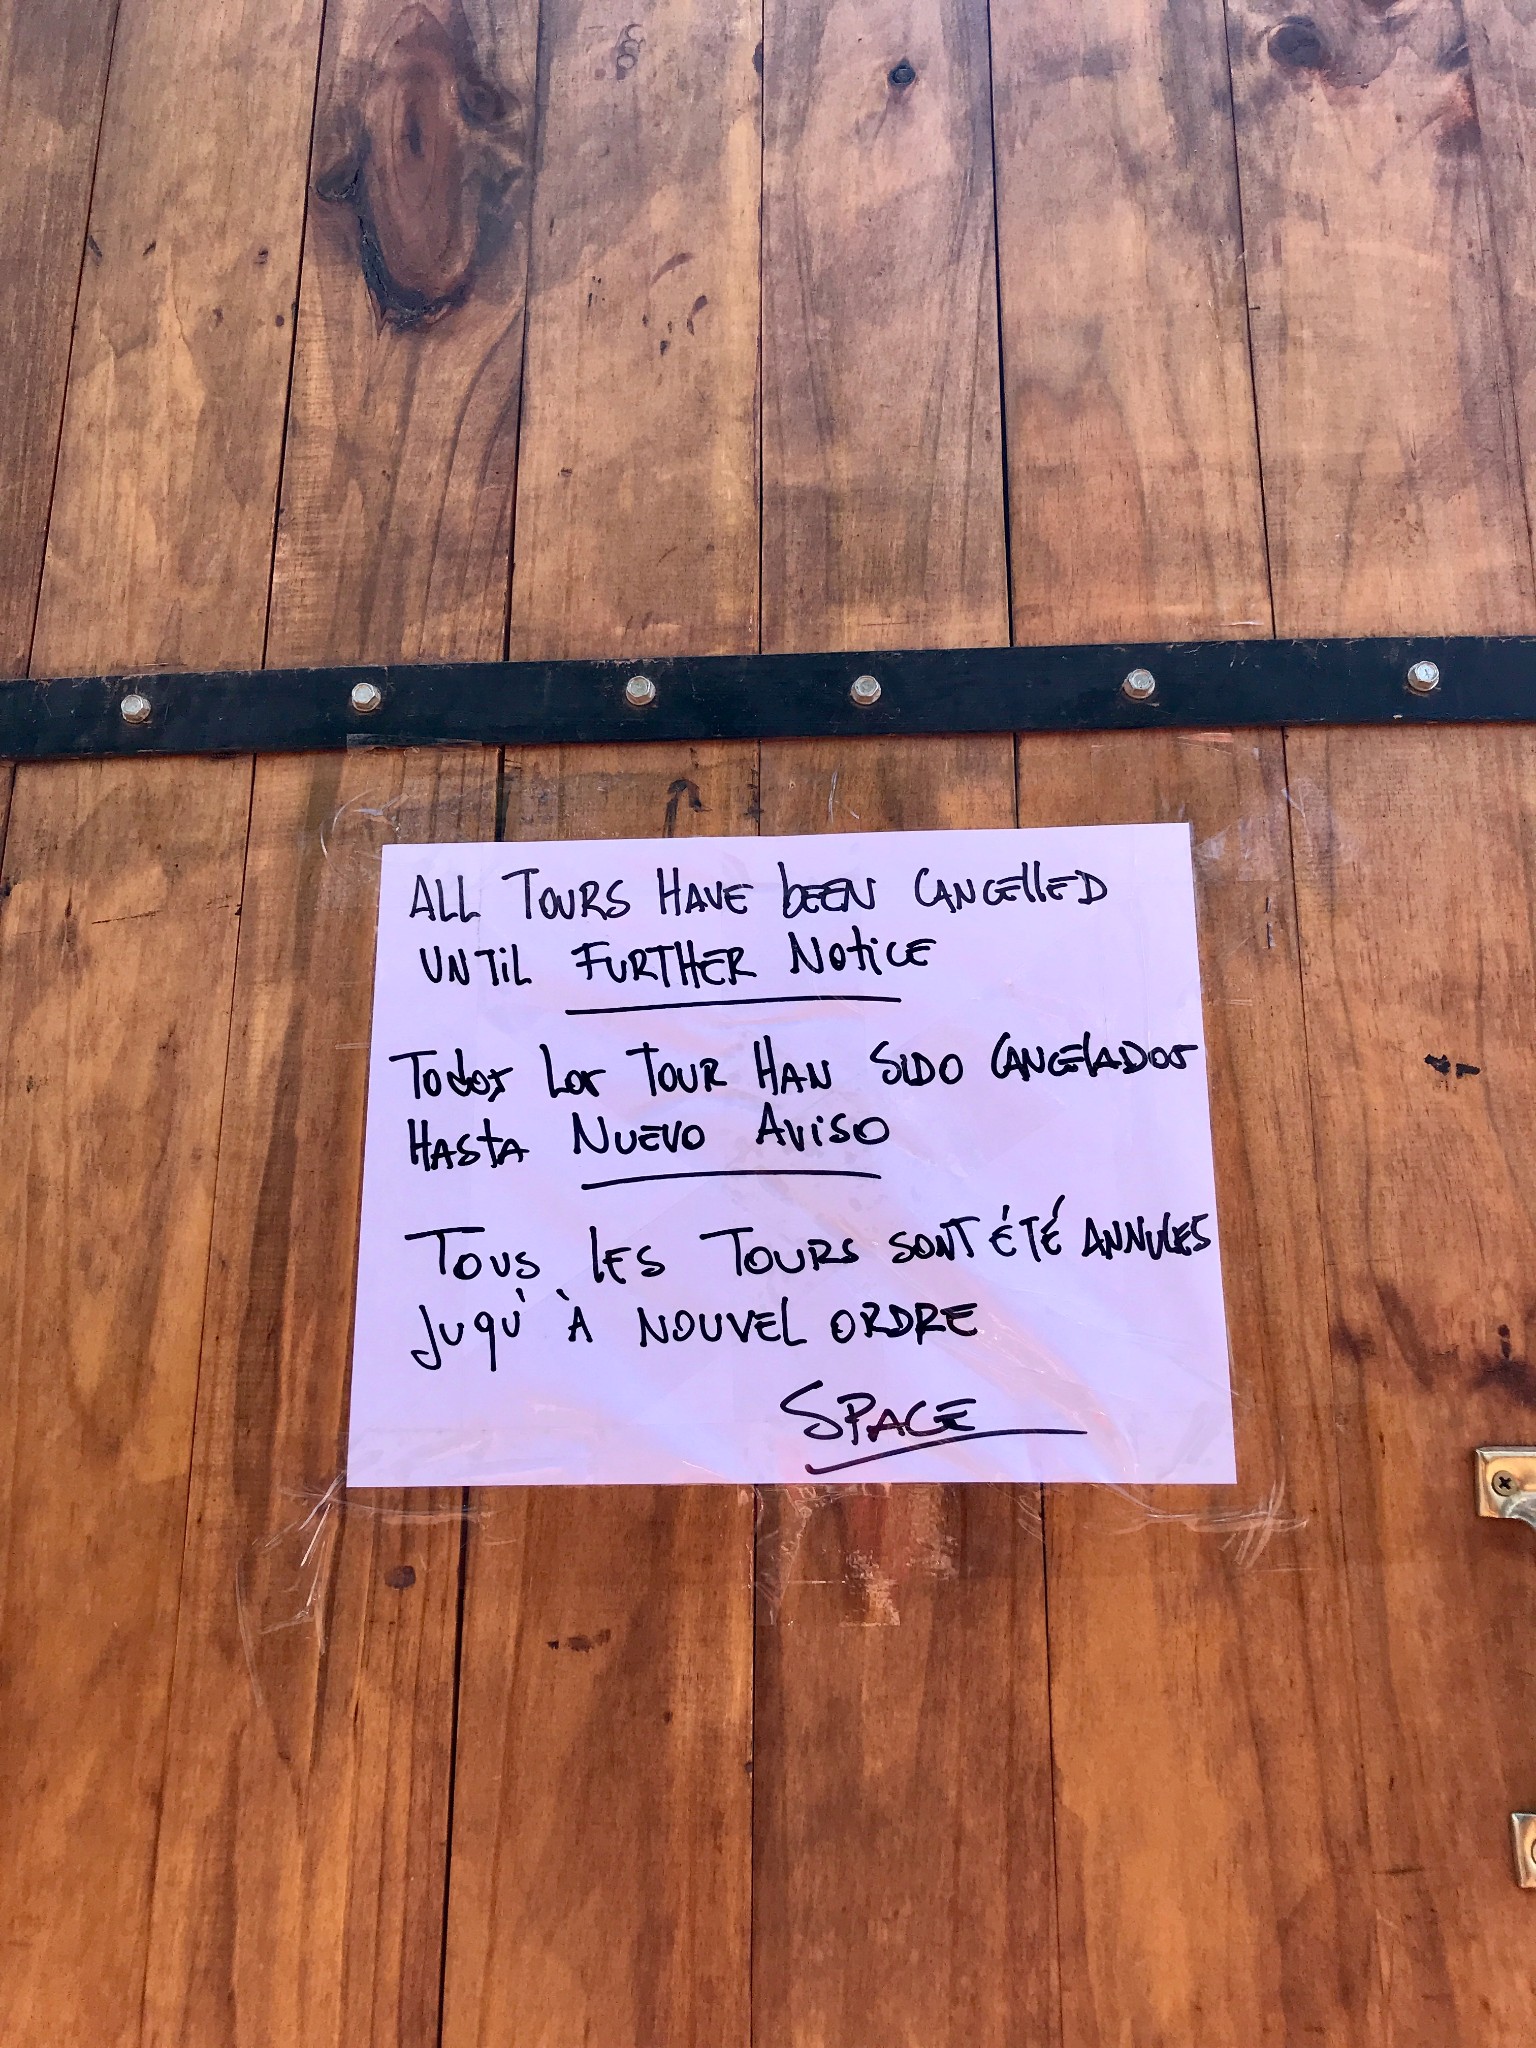 ALL TOURS HAVE bEEN CANCEllED
UNTiL FURTHER NOtiCE
Todos Los TOUR HAN SIDO CANCElADOS
HAStA NUEVO AViSO
TOUS lES TOURS SONT ÉTÉ ANNULES
JUQU'À NOUVEL ORDRE
SPACE